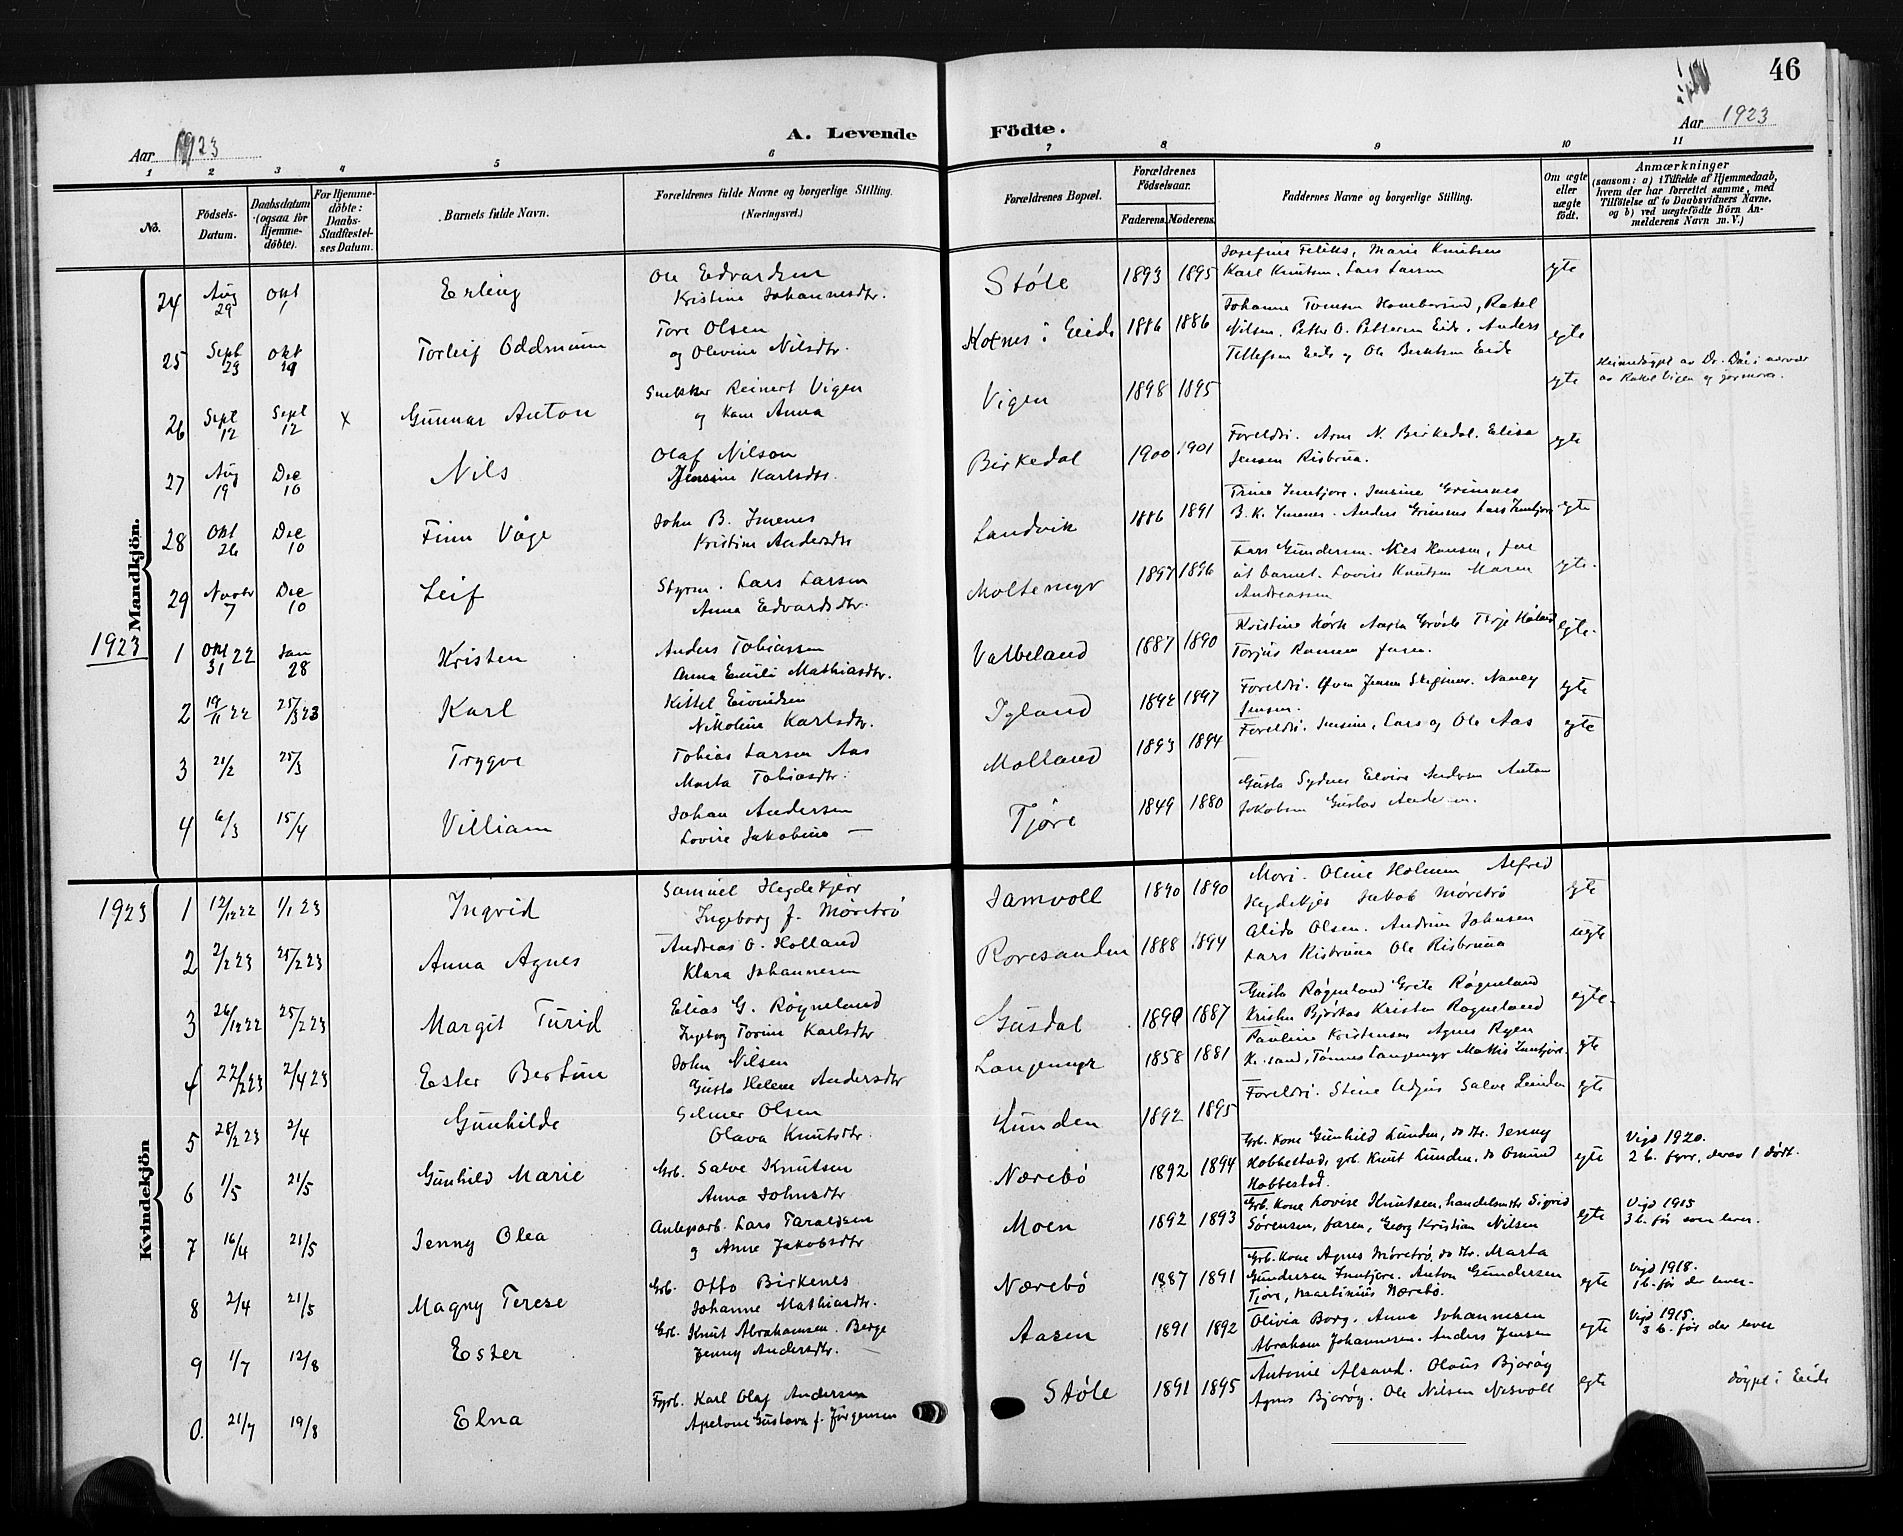 46
Aar 1923
A. Levende Födte.
Aar 1923
1 2 3 4 5 6 7 8 9 10 11
No.
Födsels-Datum.
Daabsdatum (ogsaa for Hjemmedöbte).
For Hjemmedöbte: Daabs-Stadfæstelses Datum.
Barnets fulde Navn.
Forældrenes fulde Navne og borgerlige Stilling. (Næringsvei.)
Forældrenes Bopæl.
Forældrenes Födselsaar.
Faderens. Moderens.
Faddernes Navne og borgerlige Stilling.
Om ægte eller uægte födt.
Anmærkninger
(saasom: a) i Tilfælde af Hjemmedaab, hvem der har forrettet samme, med Tilföielse af to Daabsvidners Navne, og b) ved uægtefödte Börn Anmelderens Navn m. V.)
Mandkjön.
24 Aug 29 Okt 1 Erling Ole Edvardsen Kristine Johannesdtr. Støle 1893 1895 Josefine Marie Knutsen Karl Knutsen. Lars Larsen egte
25 Sept 23 Okt 19 Torleif Oddmunn Tore Olsen og Olevine Nilsdtr. Eide 1886 1886 Johanne Rakel Nilsen. Petter O. Pettersen Eide. Anders Tellefsen Eide og Ole Berntsen Eide egte
26 Sept 12 Sept 12 x Gunnar Anton Snekker Reinert Vigen og kone Anna Vigen 1898 1895 egte Heimedøypt av Dr. av Rakel Vigen og jormora.
27 Aug 19 Dec 10 Nils Olaf Nilson Jensine Karlsdtr. Birkedal 1900 1901 Foreldri. Arne N. Birkedal. Elisa Jensen Risbrua. egte
28 Okt 26 Dec 10 Finn Våge John B. Imenes Kristine Andersdtr Landvik 1886 1891 Trine Inntjore. Jensine Grimnes B. K. Imenes. Anders Grimnes Lars Inntjore egte
29 Novbr 7 Dec 10 Leif Styrm. Lars Larsen Anna Edvardsdtr. Moltemyr 1897 1896 Lars Gundersen. Nils Hansen, far åt barnet. Lovise Knutsen Maren Andreassen egte.
1923
1 Okt 31 22 Jan 28 Kristen Anders Tobiassen Anna Emili Mathiasdtr. Valbeland 1887 1890 Kristine egte.
2 19/11 22 25/3 23 Karl Kittel Eivindsen Nikoline Karlsdtr. Igland 1892 1897 Foreldri. Øven Jensen Nancy Jensen. egte
3 21/2 25/3 Trygve Tobias Larsen Aas Marta Tobiasdtr. Molland 1893 1894 Foreldri. Jensine, Lars og Ole Aas egte
4 6/3 15/4 Villiam Johan Andersen Lovise Jakobine — Tjøre 1849 1880 Gusta Sydnes Elvire Andersen Anton Jakobsen Gustav Andersen.
Kvindekjön
1923
1 12/12 22 1/1 23 Ingrid Samuel Hegdekjerr Ingeborg f. Møretrø Jamvoll 1890 1890 Mori. Oline Holmen Alfred Hegdekjer Jakob Møretrø egte
2 2/2 23 25/2 23 Anna Agnes Andreas O. Holland Klara Johannesen Roresanden 1888 1894 Alida Olsen. Andrine Johnsen Lars Risbruna Ole Risbruna uegte
3 26/12 22 25/2 23 Margit Turid Elias G. Røyneland Ingeborg Torine Karlsdtr Gusdal 1890 1887 Gusta Røyneland Grete Røyneland Kristen Røyneland egte.
4 22/2 23 2/4 23 Ester Bertine John Nilsen Gusta Helene Andersdtr Langemyr 1858 1881 Pauline Kristensen Agnes Ryen Kr.sand, Tønnes Langemyr Mattis Inntjore. egte
5 28/2 23 2/4 Gunhilde Gilmer Olsen Olava Knutsdtr. Lunden 1892 1895 Foreldri. Stine Salve Lunden egte
6 1/5 21/5 Gunhild Marie Grb. Salve Knutsen Anna Johnsdtr Nærebø 1892 1894 Grb. Kone Gunhild Lunden, do dtr. Jenny Hobbestad, grb. Knut Lunden, do Omund Hobbestad. egte Vigd 1920. 2 b. fyrr, derav 1 dødt.
7 16/4 21/5 Jenny Olea Anlegsarb. Lars Taraldsen og Anne Jakobsdtr Moen 1892 1893 Grb. Kone Lovise Knutsen, handelsmdtr Sigrid Sørensen, faren, Georg Kristian Nilsen egte Vigd 1915 3 b. før som lever.
8 2/4 21/5 Magny Terese Grb. Otto Birkenes Johanne Mathiasdtr. Nærebø 1887 1891 Grb. Kone Agnes Møretrø, do dtr. Marta Gundersen Inntjore. Anton Gundersen Tjøre, Martinius Nærebø. egte Vigd 1918. 1 b. før der lever.
9 1/7 12/8 Ester Grb. Knut Abrahamsen. Berge Jenny Andersdtr. — Aasen 1891 1892 Olivia Borg. Anna Johannesen Abraham Johannesen. Anders Jensen egte Vigd 1915. 3 b. før der lever
0. 21/7 19/8 Elna Fyrb. Karl Olaf Andersen Apelone Gustava f. Jørgensen Støle 1891 1895 Antonie Alsand. Olaus Bjorøy Agnes Bjorøy. Ole Nilsen Nesvoll egte døypt i Eide